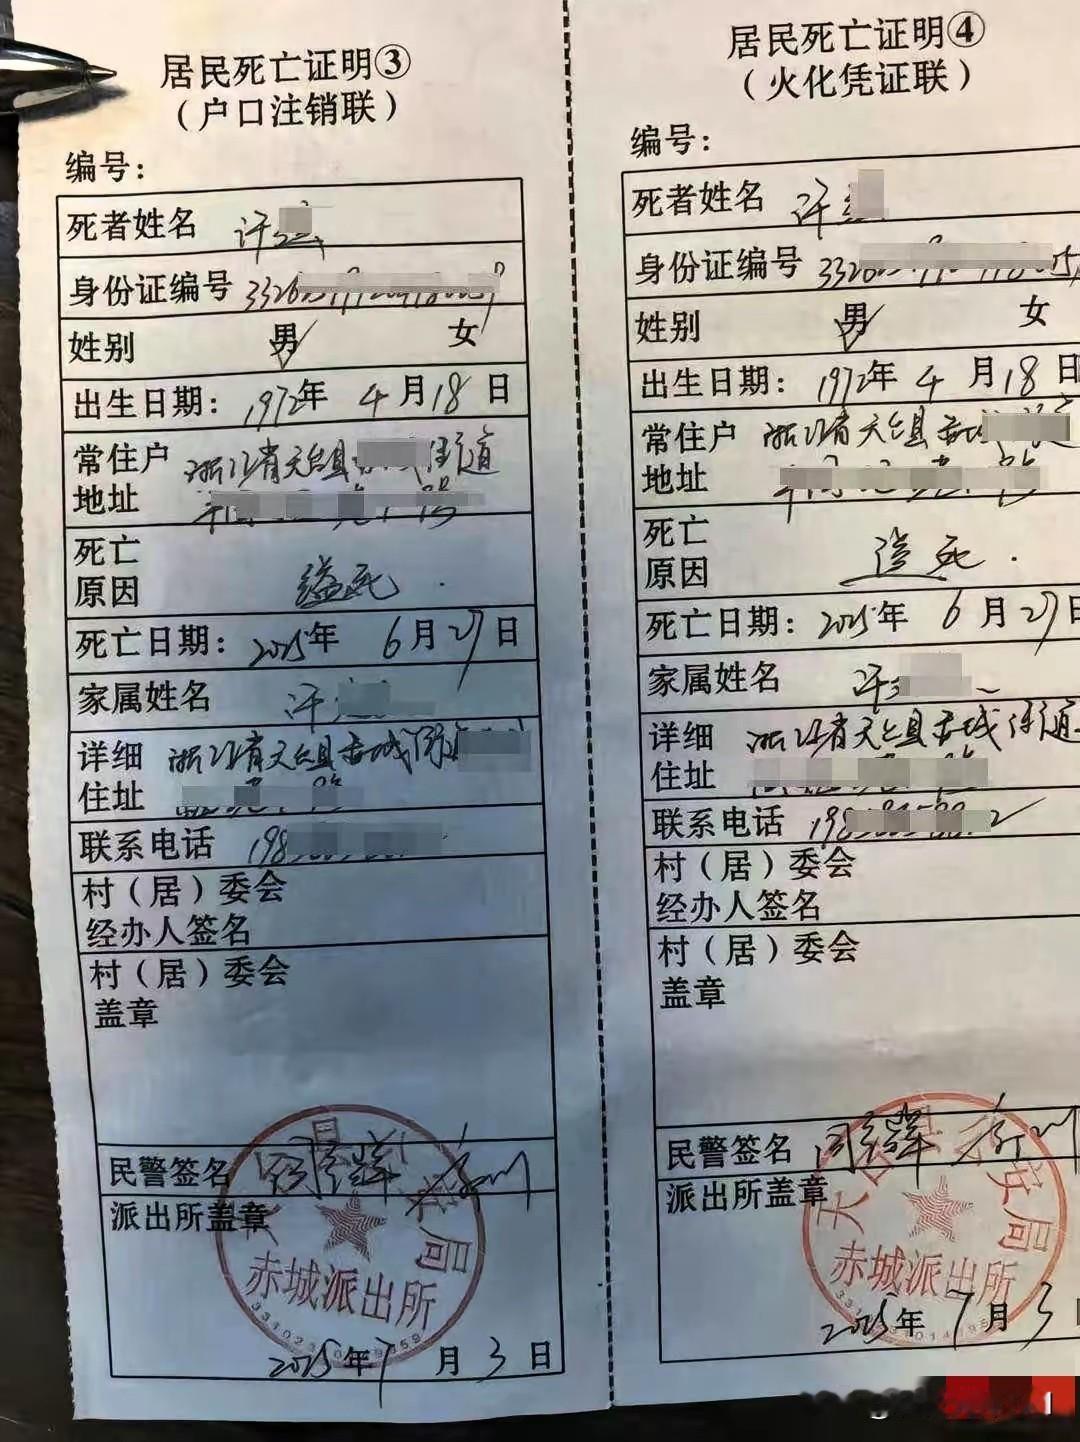 居民死亡证明③
（户口注销联）
编号：
死者姓名 许
身份证编号
姓别 男 女
出生日期：1972年 4月18日
常住户 浙江省天台县 城街道
地址
死亡
原因 缢死
死亡日期：2025年 6月27日
家属姓名 许
详细 浙江省天台县赤城街
住址
联系电话 198
村（居）委会
经办人签名
村（居）委会
盖章
民警签名
派出所盖章
局
赤城派出所
2025年7月3日
居民死亡证明④
（火化凭证联）
编号：
死者姓名 许
身份证编号
姓别 男 女
出生日期：1972年 4月18日
常住户 浙江省天台县赤
地址
死亡
原因 缢死
死亡日期：2025年 6月27日
家属姓名 许
详细 浙江省天台县赤城街道
住址
联系电话 198
村（居）委会
经办人签名
村（居）委会
盖章
民警签名
派出所盖章
天台县公安局
赤城派出所
2025年7月3
1